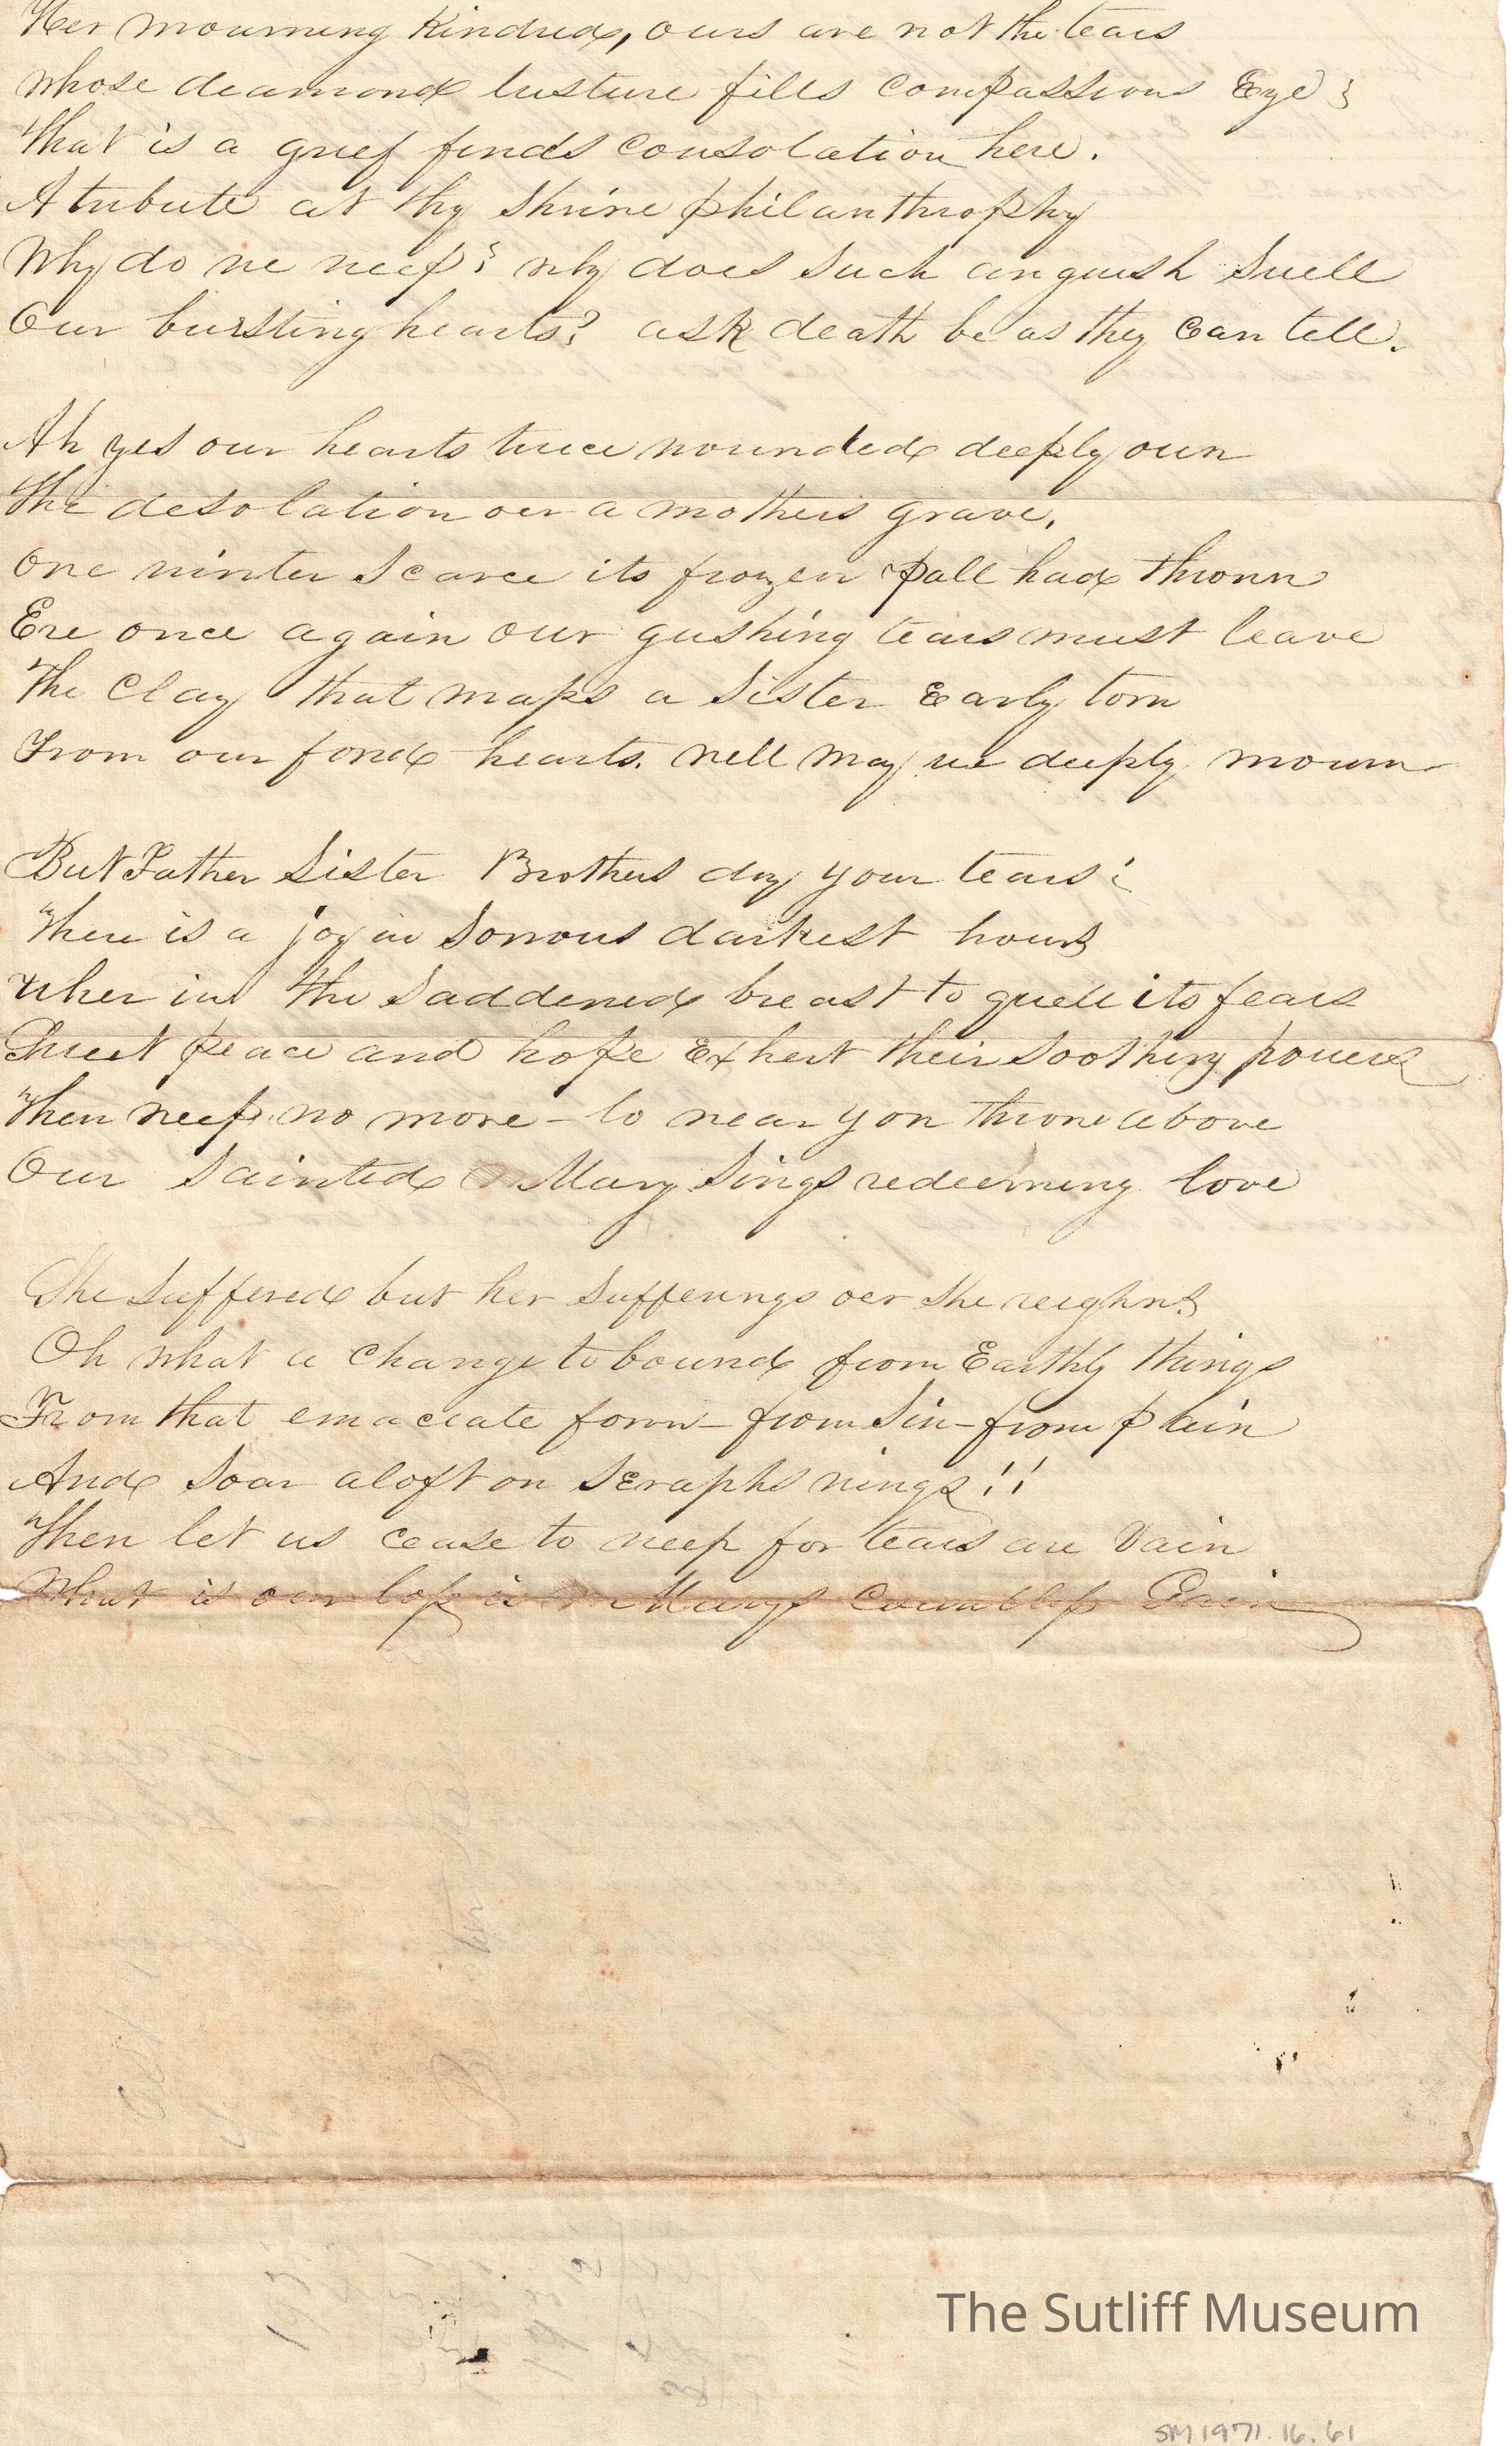 Her mourning Kindred, ours are not the tears
Whose deamond lusture fills compassions Eye ;
That is a grief finds consolation here.
A tribute at thy Shrine philanthrophy
Why do we weep? why does such anguish swell
Our bursting hearts? ask death be as they can tell.
Ah yes our hearts twice wounded deeply own
The desolation oer a mothers grave,
One winter scarce its frozen pall had thrown
Ere once again our gushing tears must leave
The Clay that wraps a Sister Early torn
From our fond hearts. well may we deeply mourn
But Father Sister Brothers dry your tears!
There is a joy in Sorrows darkest hours
When in the Saddened breast to quell its fears
Sweet peace and hope Exhert their soothing powers
Then weep no more - lo near yon throne above
Our Sainted Mary Sings redeeming love
She Suffered but her Sufferings oer She reighns
Oh what a change to bound from Earthly things
From that emaciate form - from Sin - from pain
And Soar aloft on Seraphs wings!!
Then let us cease to weep for tears are Vain
What is our loss is Marys Countless Gain
The Sutliff Museum
SM1971.16.61